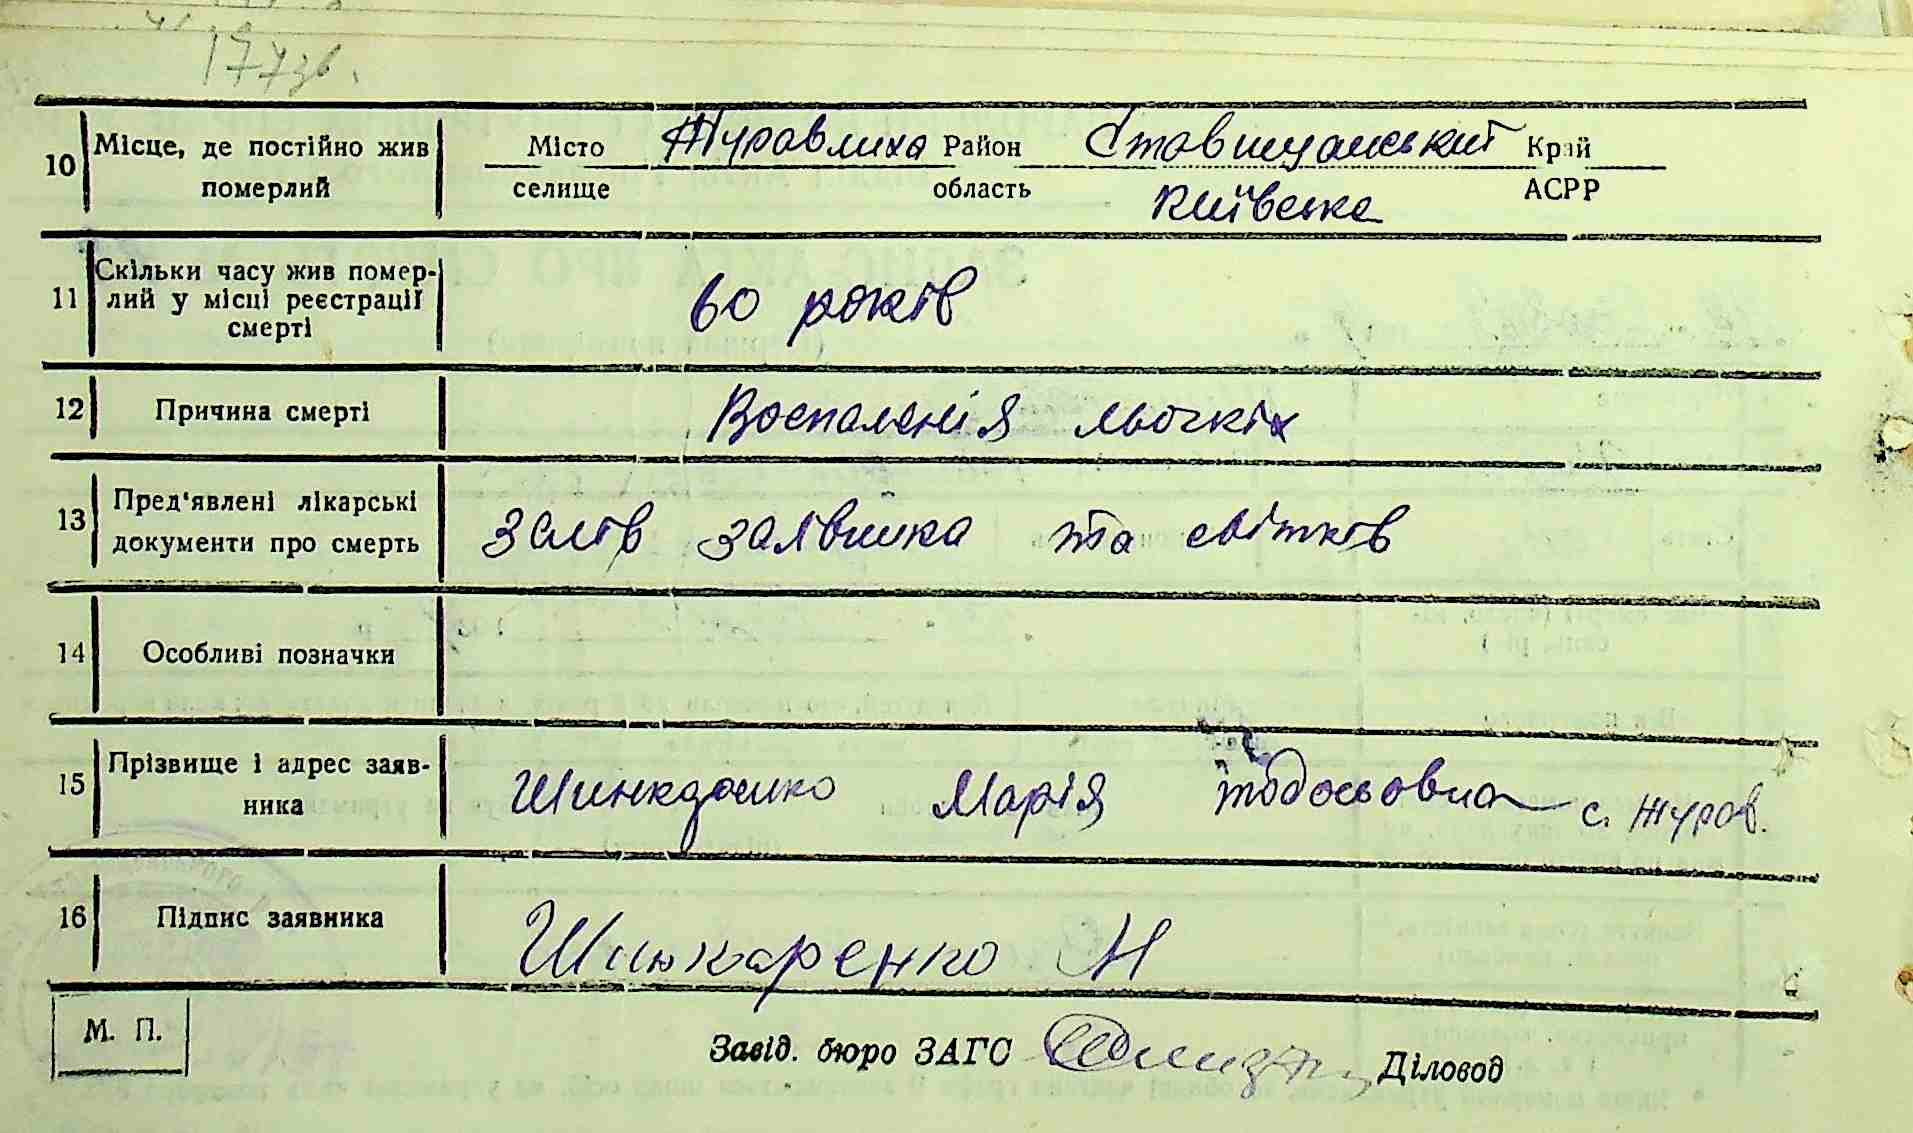 177зв.
10 Місце, де постійно жив померлий Місто селище Журавлиха Район область Ставищанський Київська Край АСРР
11 Скільки часу жив померлий у місці реєстрації смерті 60 років
12 Причина смерті Воспаленія льогкіх
13 Пред'явлені лікарські документи про смерть Заява заявника та свідків
14 Особливі позначки
15 Прізвище і адрес заявника Шинкаренко Марія Тодосьовна с. Журав.
16 Підпис заявника Шинкаренко М
М. П.
Завід. бюро ЗАГС Діловод